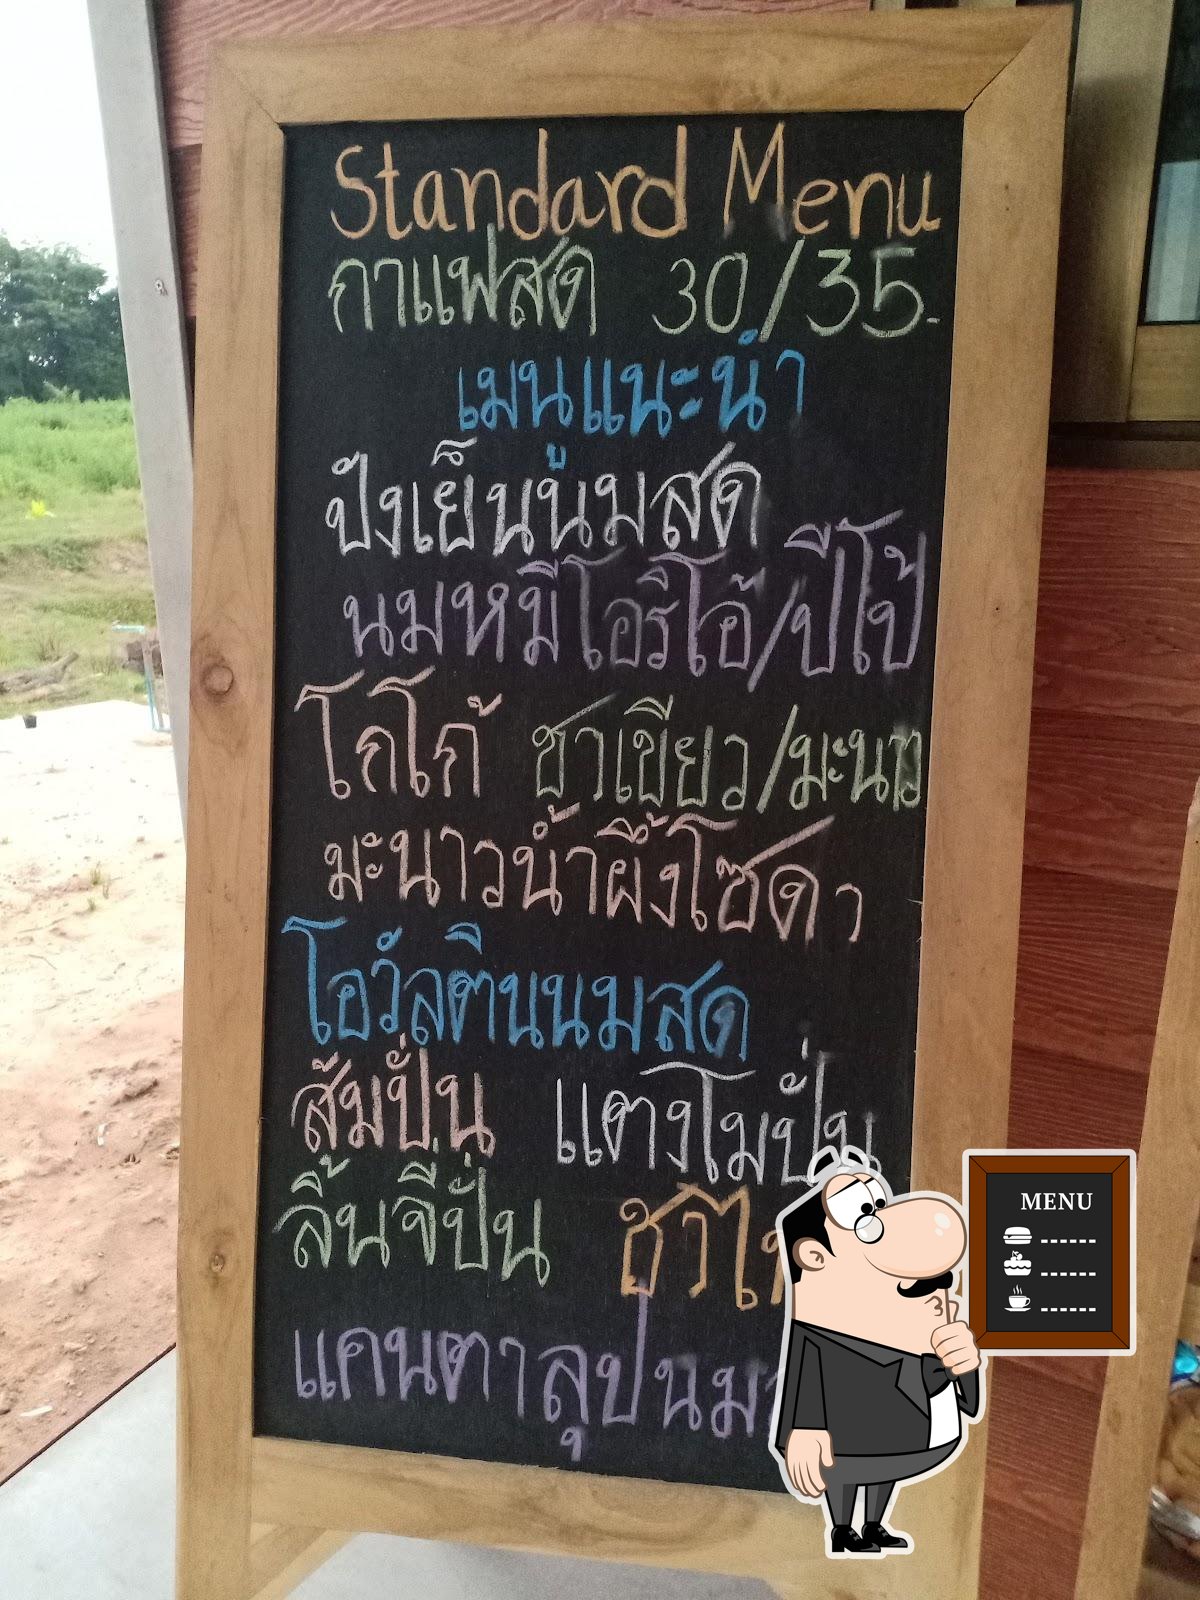 Standard Menu
กาแฟสด 30/35.-
เมนูแนะนำ
ปังเย็นนมสด
นมหมีโอริโอ้/ปีโป้
โกโก้ ชาเขียว/มะนาว
มะนาวน้ำผึ้งโซดา
โอวัลตินนมสด
ส้มปั่น แตงโมปั่น
ลิ้นจี่ปั่น
แคนตาลุปนมสด
MENU